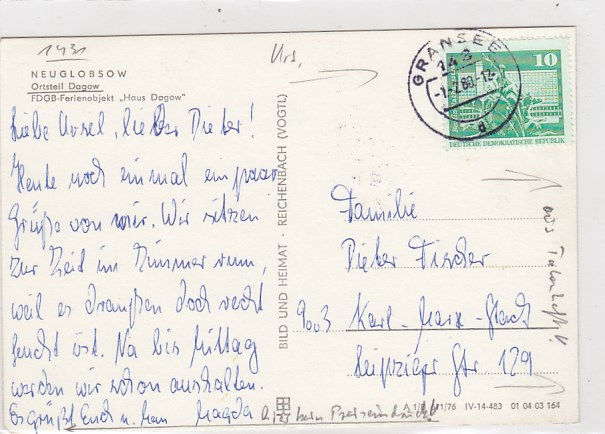 1431
Urs.
NEUGLOBSOW
Ortsteil Dagow
FDGB-Ferienobjekt „Haus Dagow"
Liebe Ursel, lieber Dieter!
Heute noch einmal ein paar
Grüße von mir. Wir sitzen
zur Zeit im Zimmer rum,
weil es draußen doch recht
feucht ist. Na bis Mittag
werden wir schon aushalten.
Es grüßt Euch u. Magda
BILD UND HEIMAT · REICHENBACH (VOGTL)
GRANSEE
142
-1.-2.80.-12
d
10
DEUTSCHE DEMOKRATISCHE REPUBLIK
Familie
Dieter Fischer
9003 Karl-Marx-Stadt
Leipziger Str 129
IV-14-483 01 04 03 164